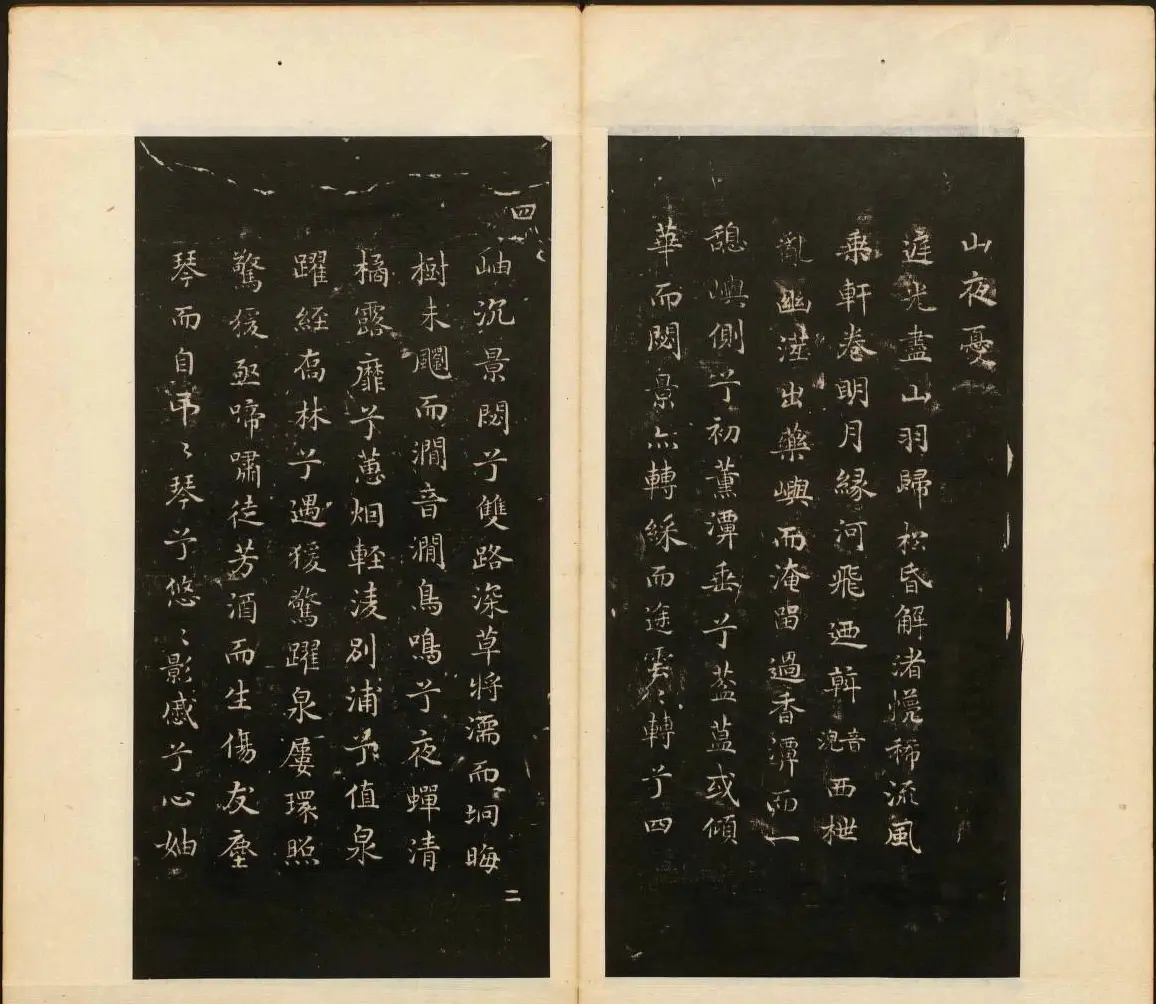 山夜憂
遅光盡山羽歸松昏解渚幌稀流風
乗軒卷明月緣河飛迺斡音浣西枻
亂幽澨出藥嶼而淹畱過香潭而一
憩嶼側兮初薰潭垂兮葐蒀或傾
華而閟景亦轉綵而途雲〻轉兮四
四
岫沉景閟兮雙路深草將濡而坰晦
樹未飈而澗音澗鳥鳴兮夜蟬清
橘露靡兮蕙烟輕淩別浦兮值泉
躍經喬林兮遇猨驚躍泉屢環照
驚猨亟啼嘯徒芳酒而生傷友塵
琴而自弔〻琴兮悠〻影慼兮心妯
二